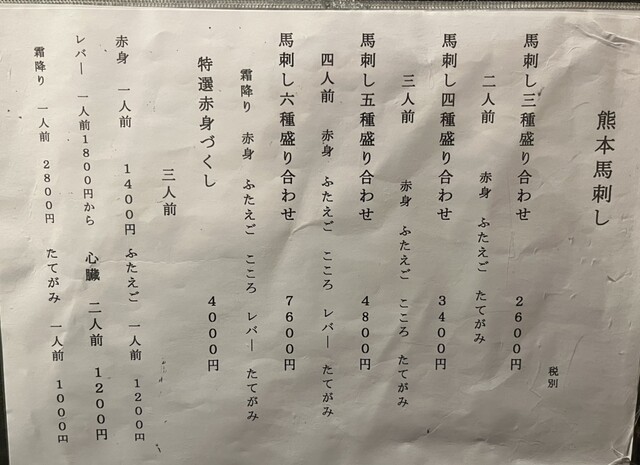 熊本馬刺し
税別
馬刺し三種盛り合わせ 2600円
二人前 赤身 ふたえご たてがみ
馬刺し四種盛り合わせ 3400円
三人前 赤身 ふたえご こころ たてがみ
馬刺し五種盛り合わせ 4800円
四人前 赤身 ふたえご こころ レバー たてがみ
馬刺し六種盛り合わせ 7600円
霜降り 赤身 ふたえご こころ レバー たてがみ
特選赤身づくし 4000円
三人前
赤身 一人前 1400円 ふたえご 一人前 1200円
レバー 一人前1800円から 心臓 二人前 1200円
霜降り 一人前 2800円 たてがみ 一人前 1000円